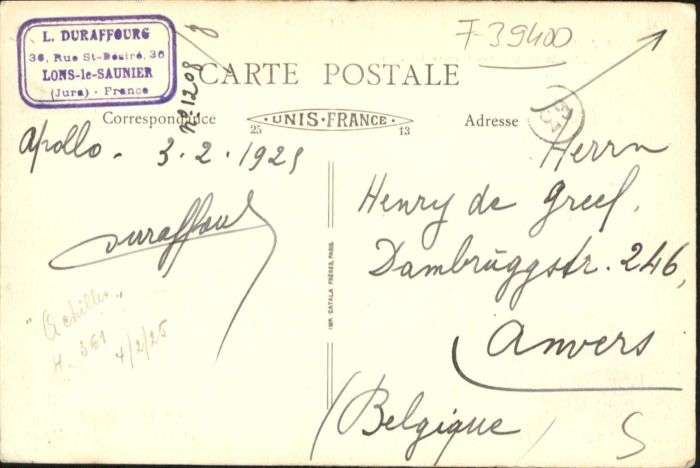 L. DURAFFOURG
36, Rue St-Desiré, 36
LONS-le-SAUNIER
(Jura) - France
No 1208
F 39400
CARTE POSTALE
Correspondance
UNIS-FRANCE
25 13
Adresse
Apollo - 3.2.1925
Duraffourg
"Achilles"
H. 361
4/2/25
IMP. CATALA FRÈRES, PARIS
Herrn
Henry de Greef,
Dambrüggstr. 246,
Anvers
(Belgique)